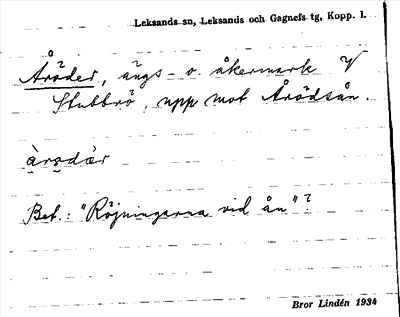 Leksands sn, Leksands och Gagnefs tg, Kopp. l.
Åröder, ängs- o. åkermark V
Stubbrö, upp mot Årödsån.
àrødær
Bet.: "Röjningarna vid ån"?
Bror Lindén 1934